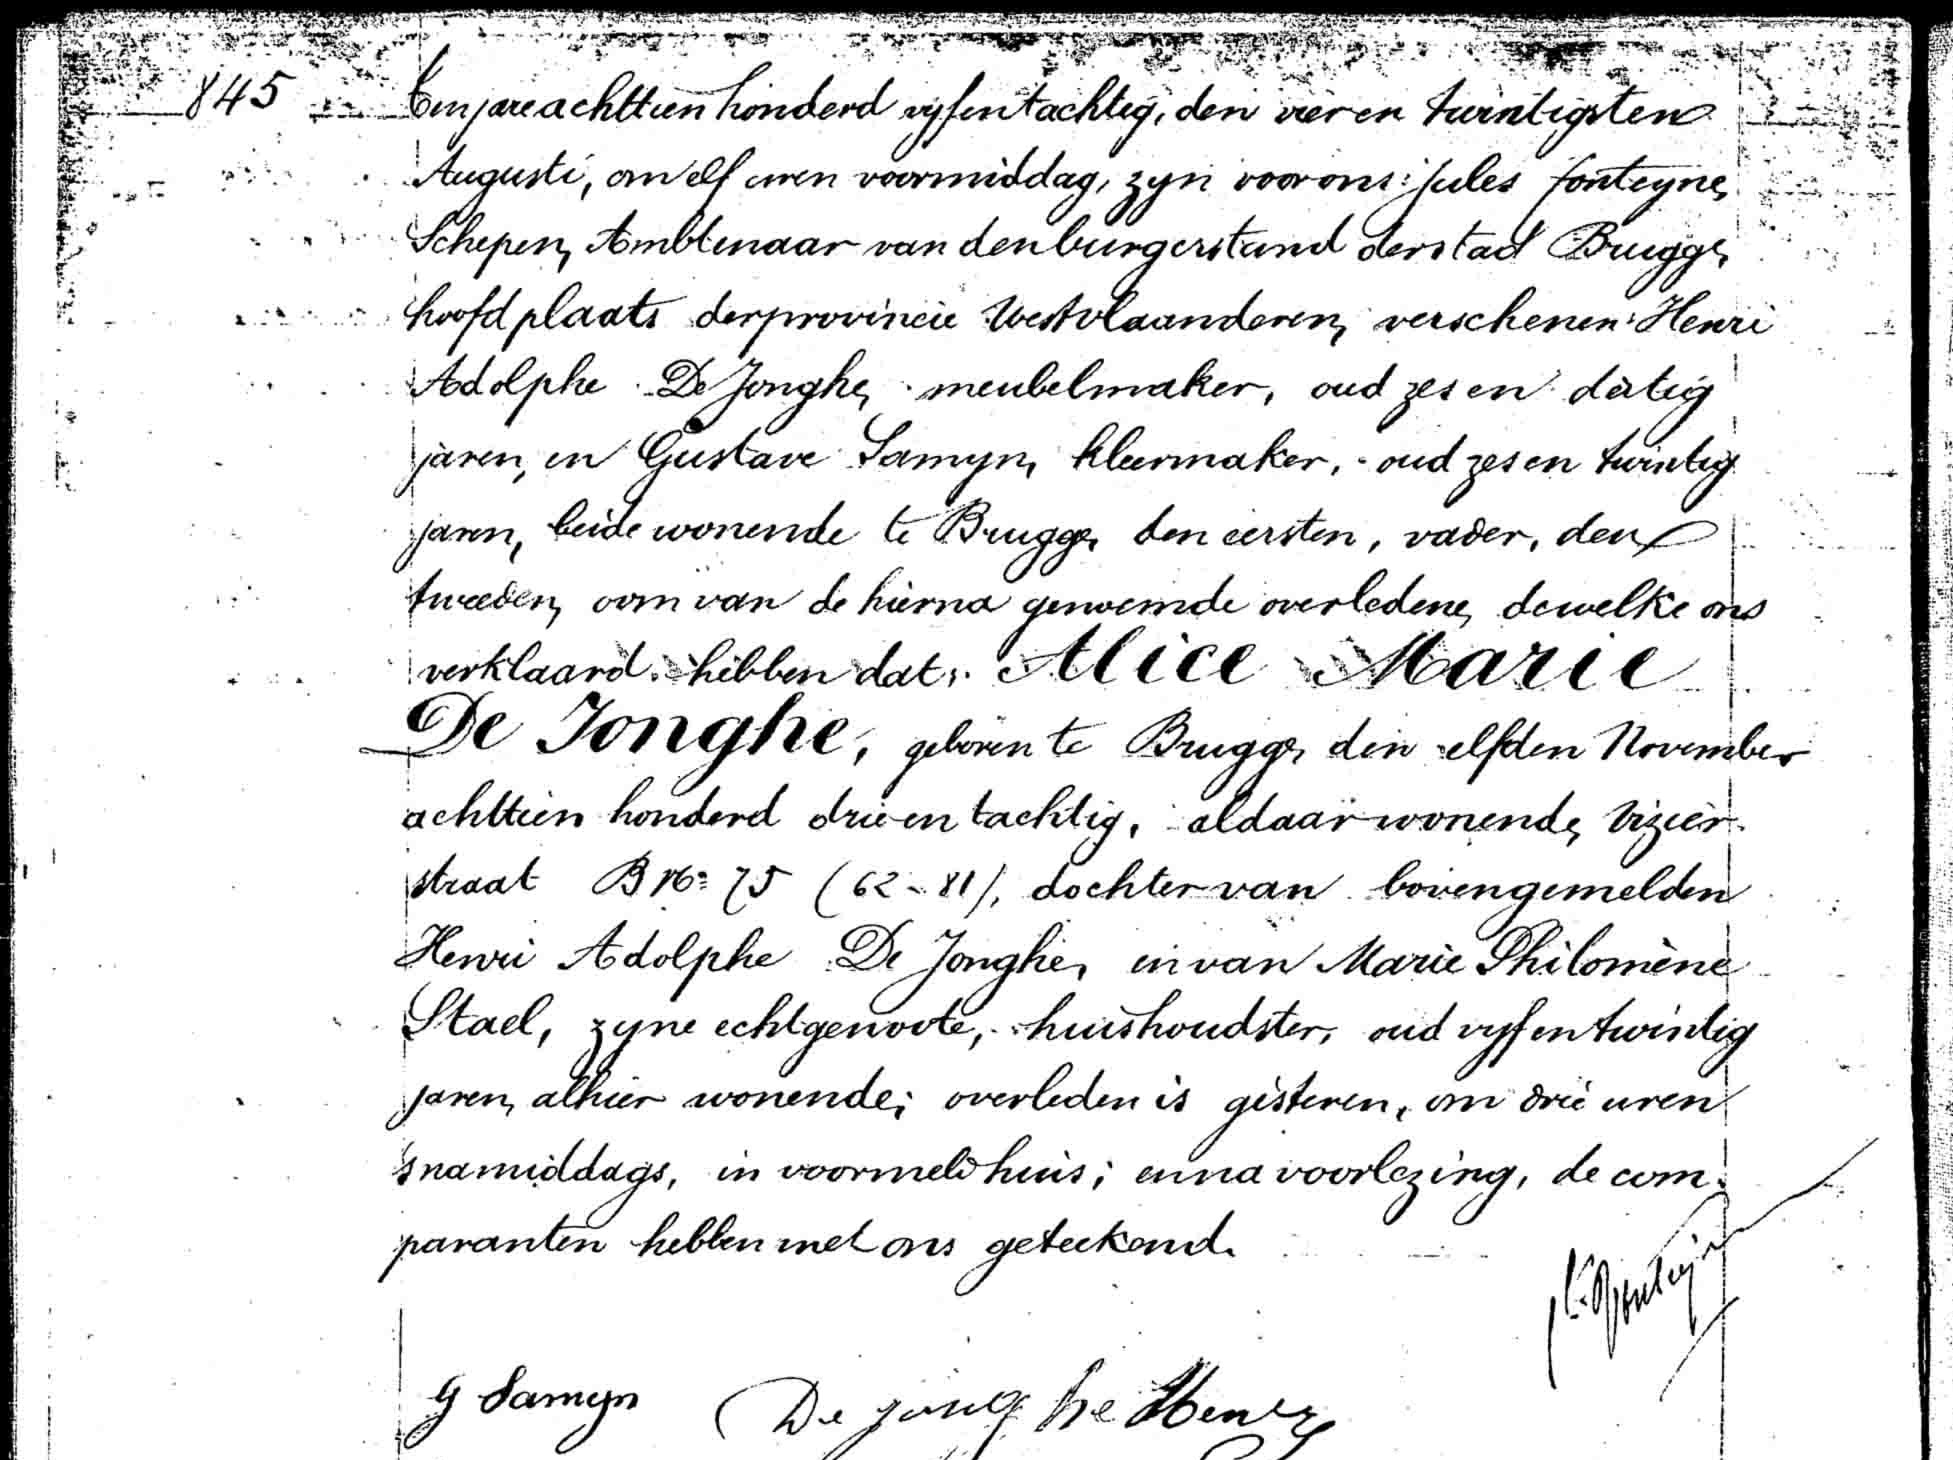 845
Ten jare achttien honderd vyfentachtig, den vier en twintigsten
Augusti, om elf uren voormiddag, zyn voor ons: Jules Fonteyne,
Schepen, Ambtenaar van den burgerstand der stad Brugge,
hoofdplaats der provincie Westvlaanderen, verschenen: Henri
Adolphe De Jonghe, meubelmaker, oud zes en dertig
jaren, en Gustave Samyn, kleermaker, oud zes en twintig
jaren, beide wonende te Brugge, den eersten, vader, den
tweeden, oom van de hierna genoemde overledene, dewelke ons
verklaard hebben dat: Alice Marie
De Jonghe, geboren te Brugge, den elfden November
achttien honderd drie en tachtig, aldaar wonende, Vizier-
straat B No 75 (62-81), dochter van bovengemelden
Henri Adolphe De Jonghe, en van Marie Philomène
Stael, zyne echtgenoote, huishoudster, oud vyf en twintig
jaren, alhier wonende; overleden is gisteren, om drie uren
'snamiddags, in voormeld huis; en na voorlezing, de com-
paranten hebben met ons geteekend.
J. Fonteyne
G Samyn De jonghe Henri